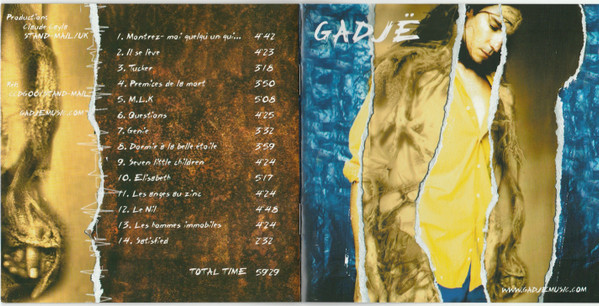 Production:
STAND-MAIL/UK
GADJEMUSIC.COM
1. Montrez-moi quelqu'un qui... 4'42
2. Il se lève 4'23
3. Tucker 3'18
4. Premices de la mort 3'50
5. M.L.K 5'08
6. Questions 4'25
7. Genie 3'32
8. Dormir à la belle étoile 3'59
9. Seven little children 4'24
10. Elisabeth 5'17
11. Les anges au zinc 4'24
12. Le Nil 4'48
13. Les hommes immobiles 4'24
14. Satisfied 2'32
TOTAL TIME 59'29
GADJË
WWW.GADJEMUSIC.COM